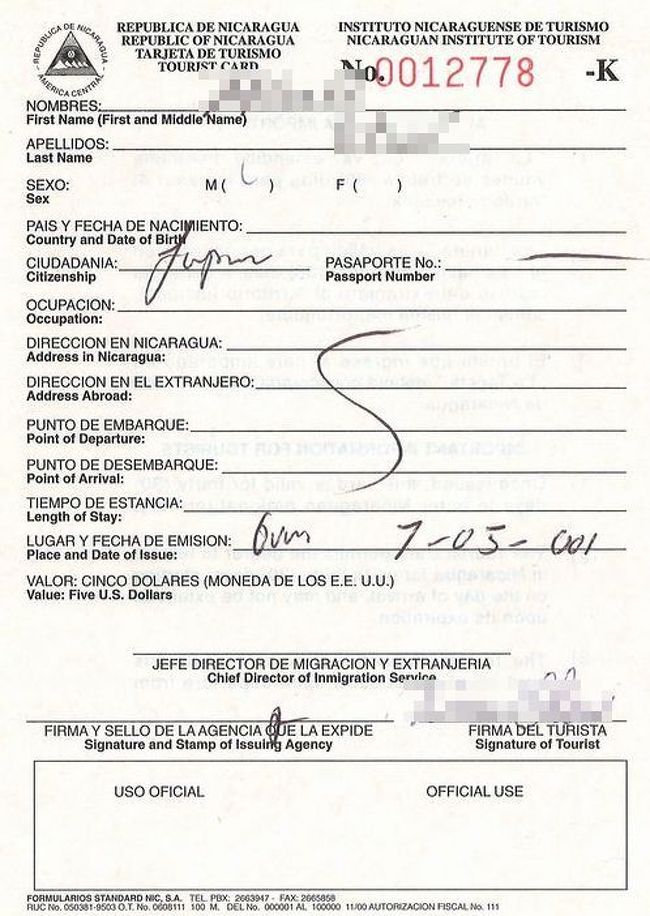 REPUBLICA DE NICARAGUA
AMERICA CENTRAL
REPUBLICA DE NICARAGUA
REPUBLIC OF NICARAGUA
TARJETA DE TURISMO
TOURIST CARD
INSTITUTO NICARAGUENSE DE TURISMO
NICARAGUAN INSTITUTE OF TOURISM
No. 0012778 -K
NOMBRES:
First Name (First and Middle Name)
APELLIDOS:
Last Name
SEXO: M ( ) F ( )
Sex
PAIS Y FECHA DE NACIMIENTO:
Country and Date of Birth
CIUDADANIA: Japon PASAPORTE No.:
Citizenship Passport Number
OCUPACION:
Occupation:
DIRECCION EN NICARAGUA:
Address in Nicaragua:
DIRECCION EN EL EXTRANJERO:
Address Abroad:
PUNTO DE EMBARQUE:
Point of Departure:
PUNTO DE DESEMBARQUE:
Point of Arrival:
TIEMPO DE ESTANCIA:
Length of Stay:
LUGAR Y FECHA DE EMISION: 7-05-001
Place and Date of Issue:
VALOR: CINCO DOLARES (MONEDA DE LOS E.E. U.U.)
Value: Five U.S. Dollars
JEFE DIRECTOR DE MIGRACION Y EXTRANJERIA
Chief Director of Inmigration Service
FIRMA Y SELLO DE LA AGENCIA QUE LA EXPIDE FIRMA DEL TURISTA
Signature and Stamp of Issuing Agency Signature of Tourist
USO OFICIAL OFFICIAL USE
FORMULARIOS STANDARD NIC, S.A. TEL. PBX: 2663947 - FAX: 2665858
RUC No. 050381-9503 O.T. No. 0608111 100 M. DEL No. 000001 AL 100000 11/00 AUTORIZACION FISCAL No. 111